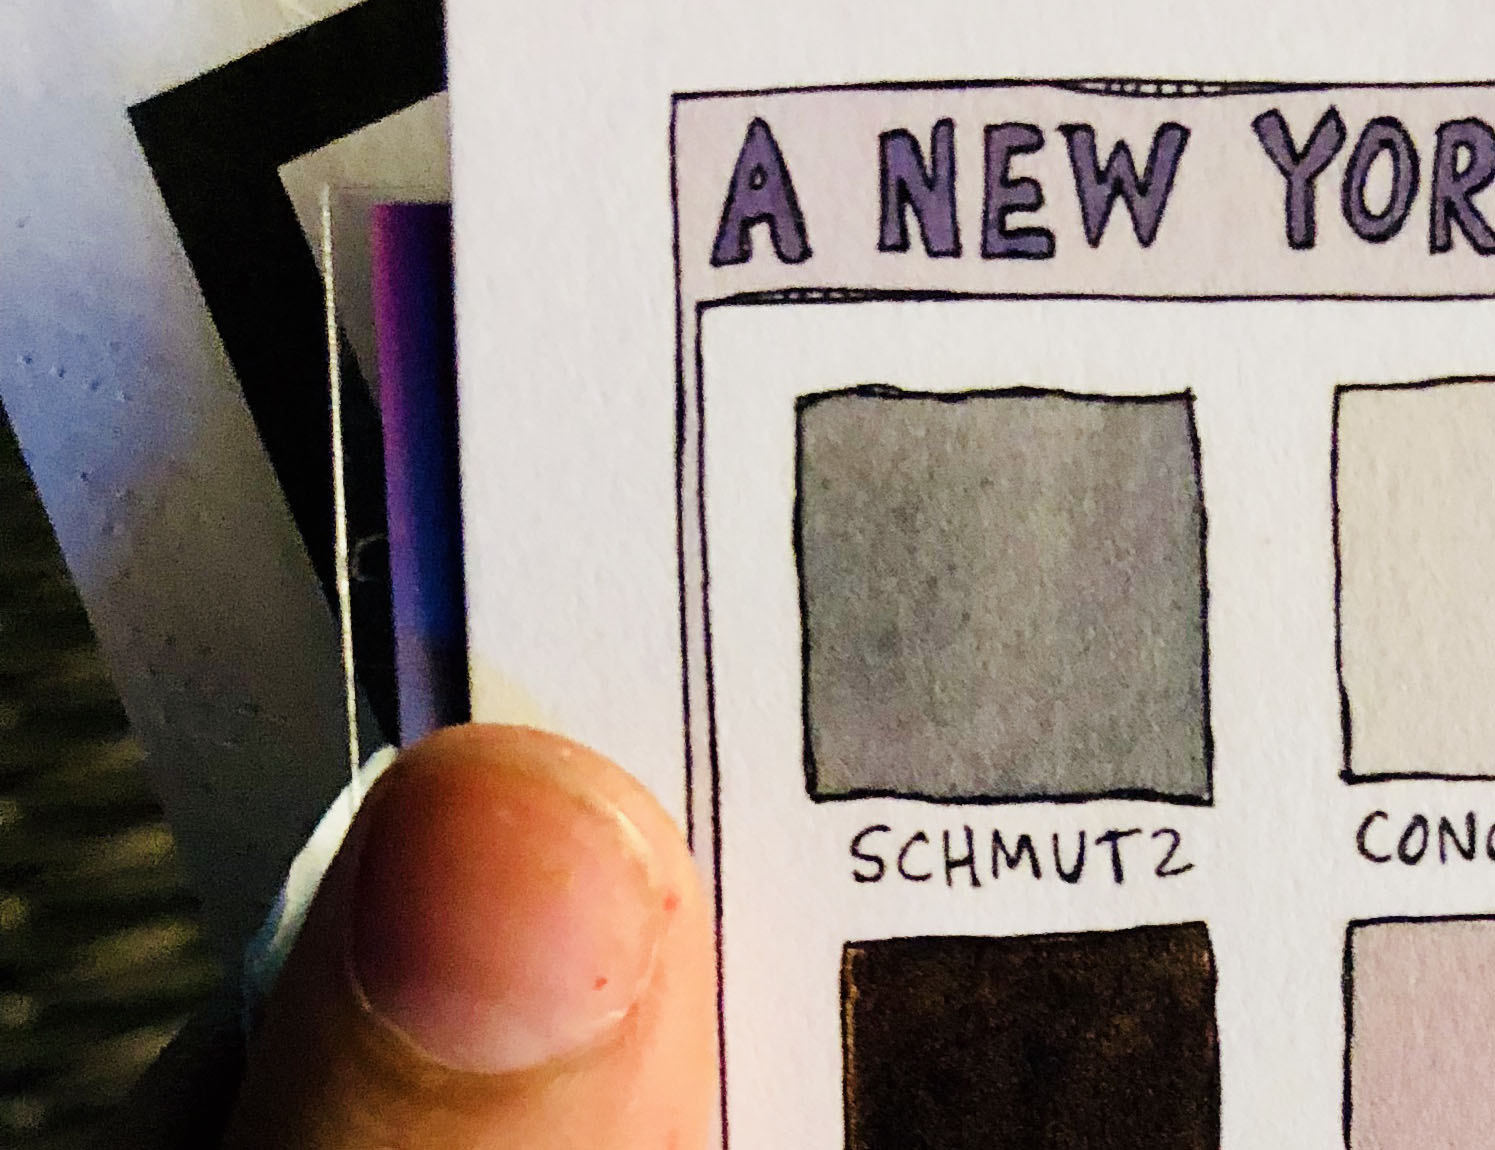 A NEW YOR
SCHMUTZ
CONC